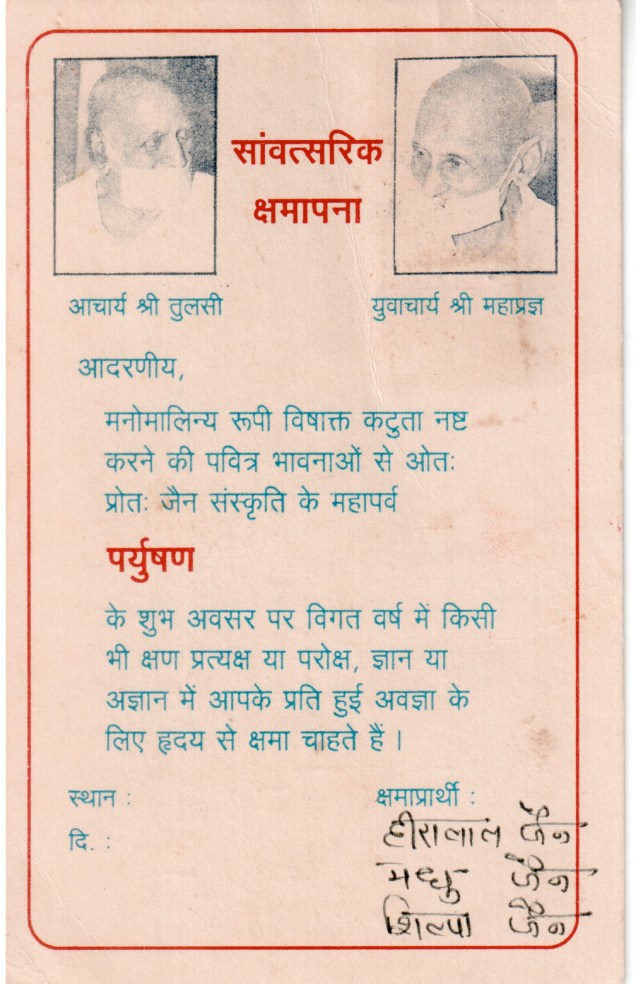 सांवत्सरिक
क्षमापना
आचार्य श्री तुलसी
युवाचार्य श्री महाप्रज्ञ
आदरणीय,
मनोमालिन्य रूपी विषाक्त कटुता नष्ट
करने की पवित्र भावनाओं से ओतः
प्रोतः जैन संस्कृति के महापर्व
पर्युषण
के शुभ अवसर पर विगत वर्ष में किसी
भी क्षण प्रत्यक्ष या परोक्ष, ज्ञान या
अज्ञान में आपके प्रति हुई अवज्ञा के
लिए हृदय से क्षमा चाहते हैं ।
स्थान :
दि. :
क्षमाप्रार्थी :
हीरालाल जैन
मधु जैन
शिल्पा जैन